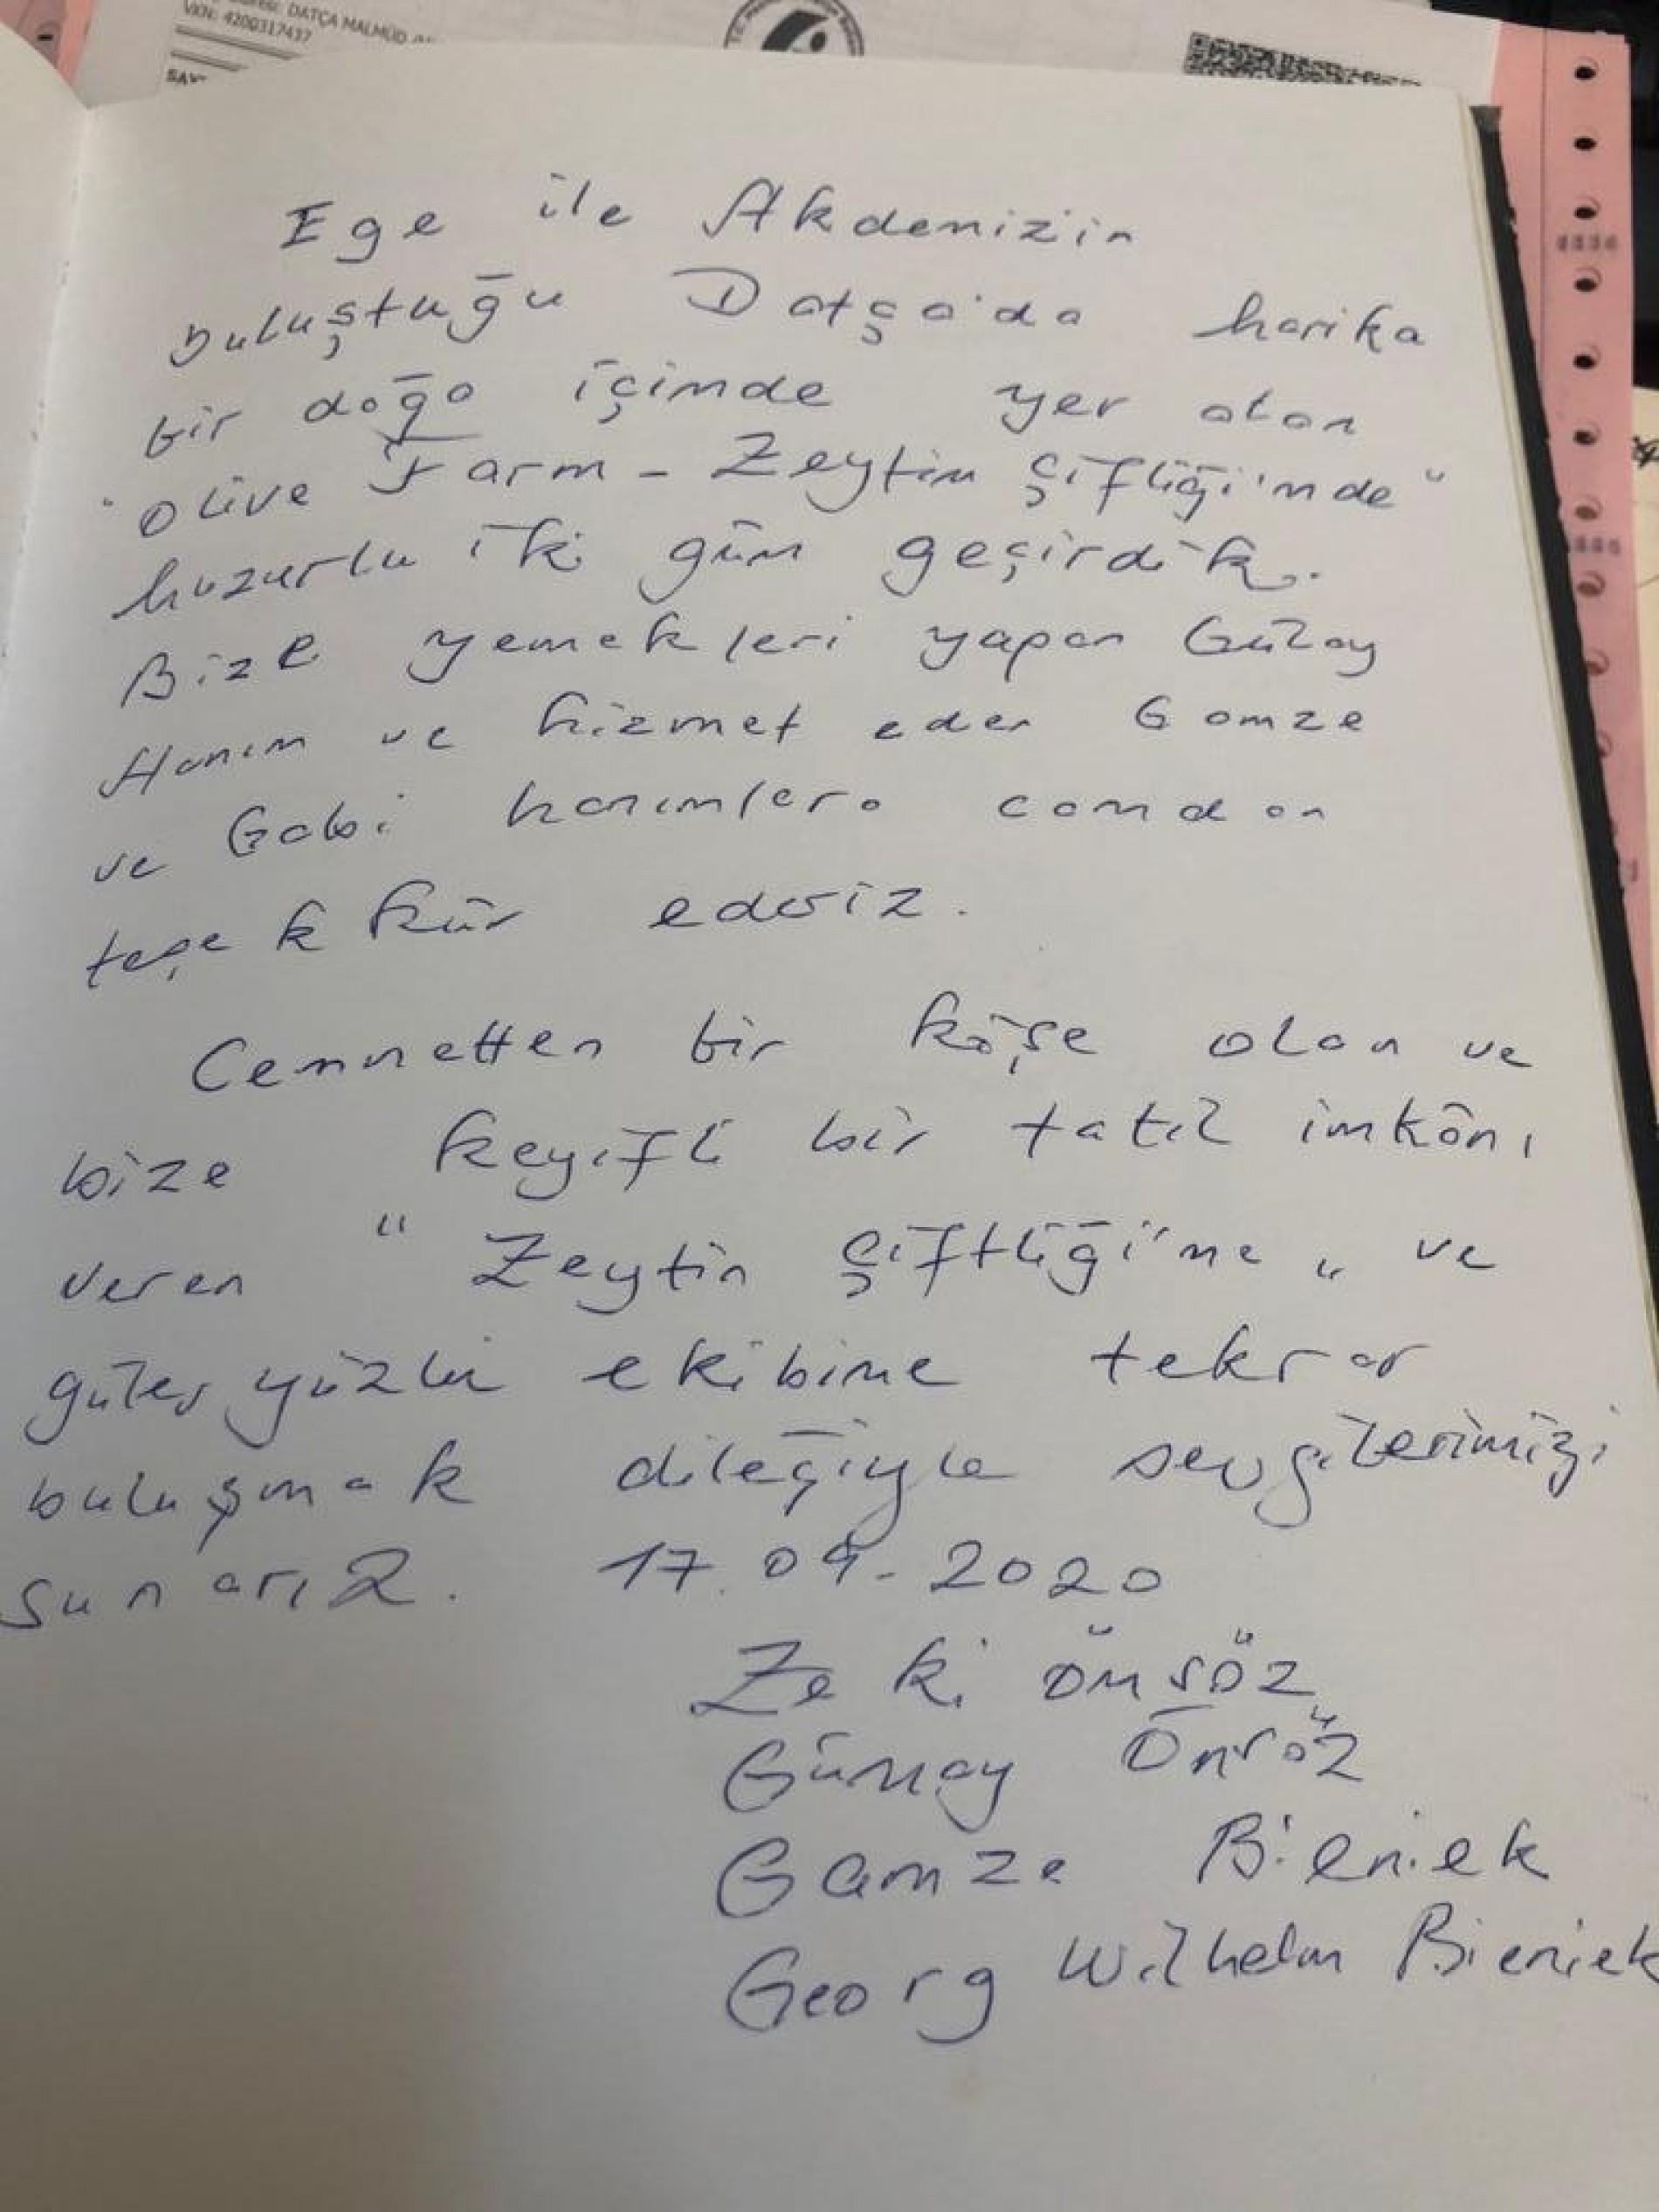 DATÇA MALMÜD
VKN: 4200317437
Ege ile Akdeniz'in
buluştuğu Datça'da harika
bir doğa içinde yer alan
"Olive Farm - Zeytin Çiftliği'nde"
huzurlu iki gün geçirdik.
Bize yemekleri yapan Gülay
Hanım ve hizmet eden Gamze
ve Gabi hanımlara candan
teşekkür ederiz.
Cennetten bir köşe olan ve
bize keyifli bir tatil imkânı
veren "Zeytin Çiftliği'ne" ve
güler yüzlü ekibine tekrar
buluşmak dileğiyle sevgilerimizi
sunarız. 17.09.2020
Zeki Önsöz
Günay Önsöz
Gamze Bieniek
Georg Wilhelm Bieniek